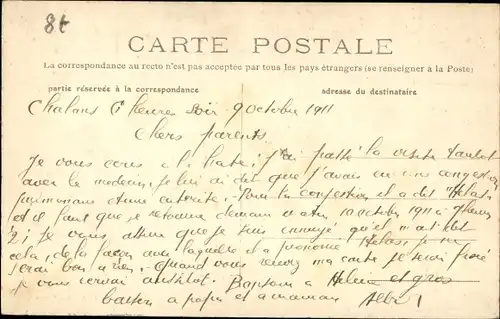 8t
CARTE POSTALE
La correspondance au recto n'est pas acceptée par tous les pays étrangers (se renseigner à la Poste)
partie réservée à la correspondance
adresse du destinataire
Chalons 6 heures soir 9 octobre 1911
Chers parents
Je vous ecris a l'hate; j'ai passé la visite tantot
avec le medecin, je lui ai dit que j'avais eu une congestion
pulmonaire et une enterite. Pour la congestion il a dit "Helas"
et il faut que je retourne demain matin 10 octobre 1911 à heures
Je vous assure que je suis ennuyé qu'il m'ait dit
cela, de la façon avec laquelle il a prononcé Helas. je ne
serai bon a rien. Quand vous recevrez ma carte je serai fixé
je vous ecrirai aussitot. Bonsoir a Helene et gros
baisers a papa et a maman